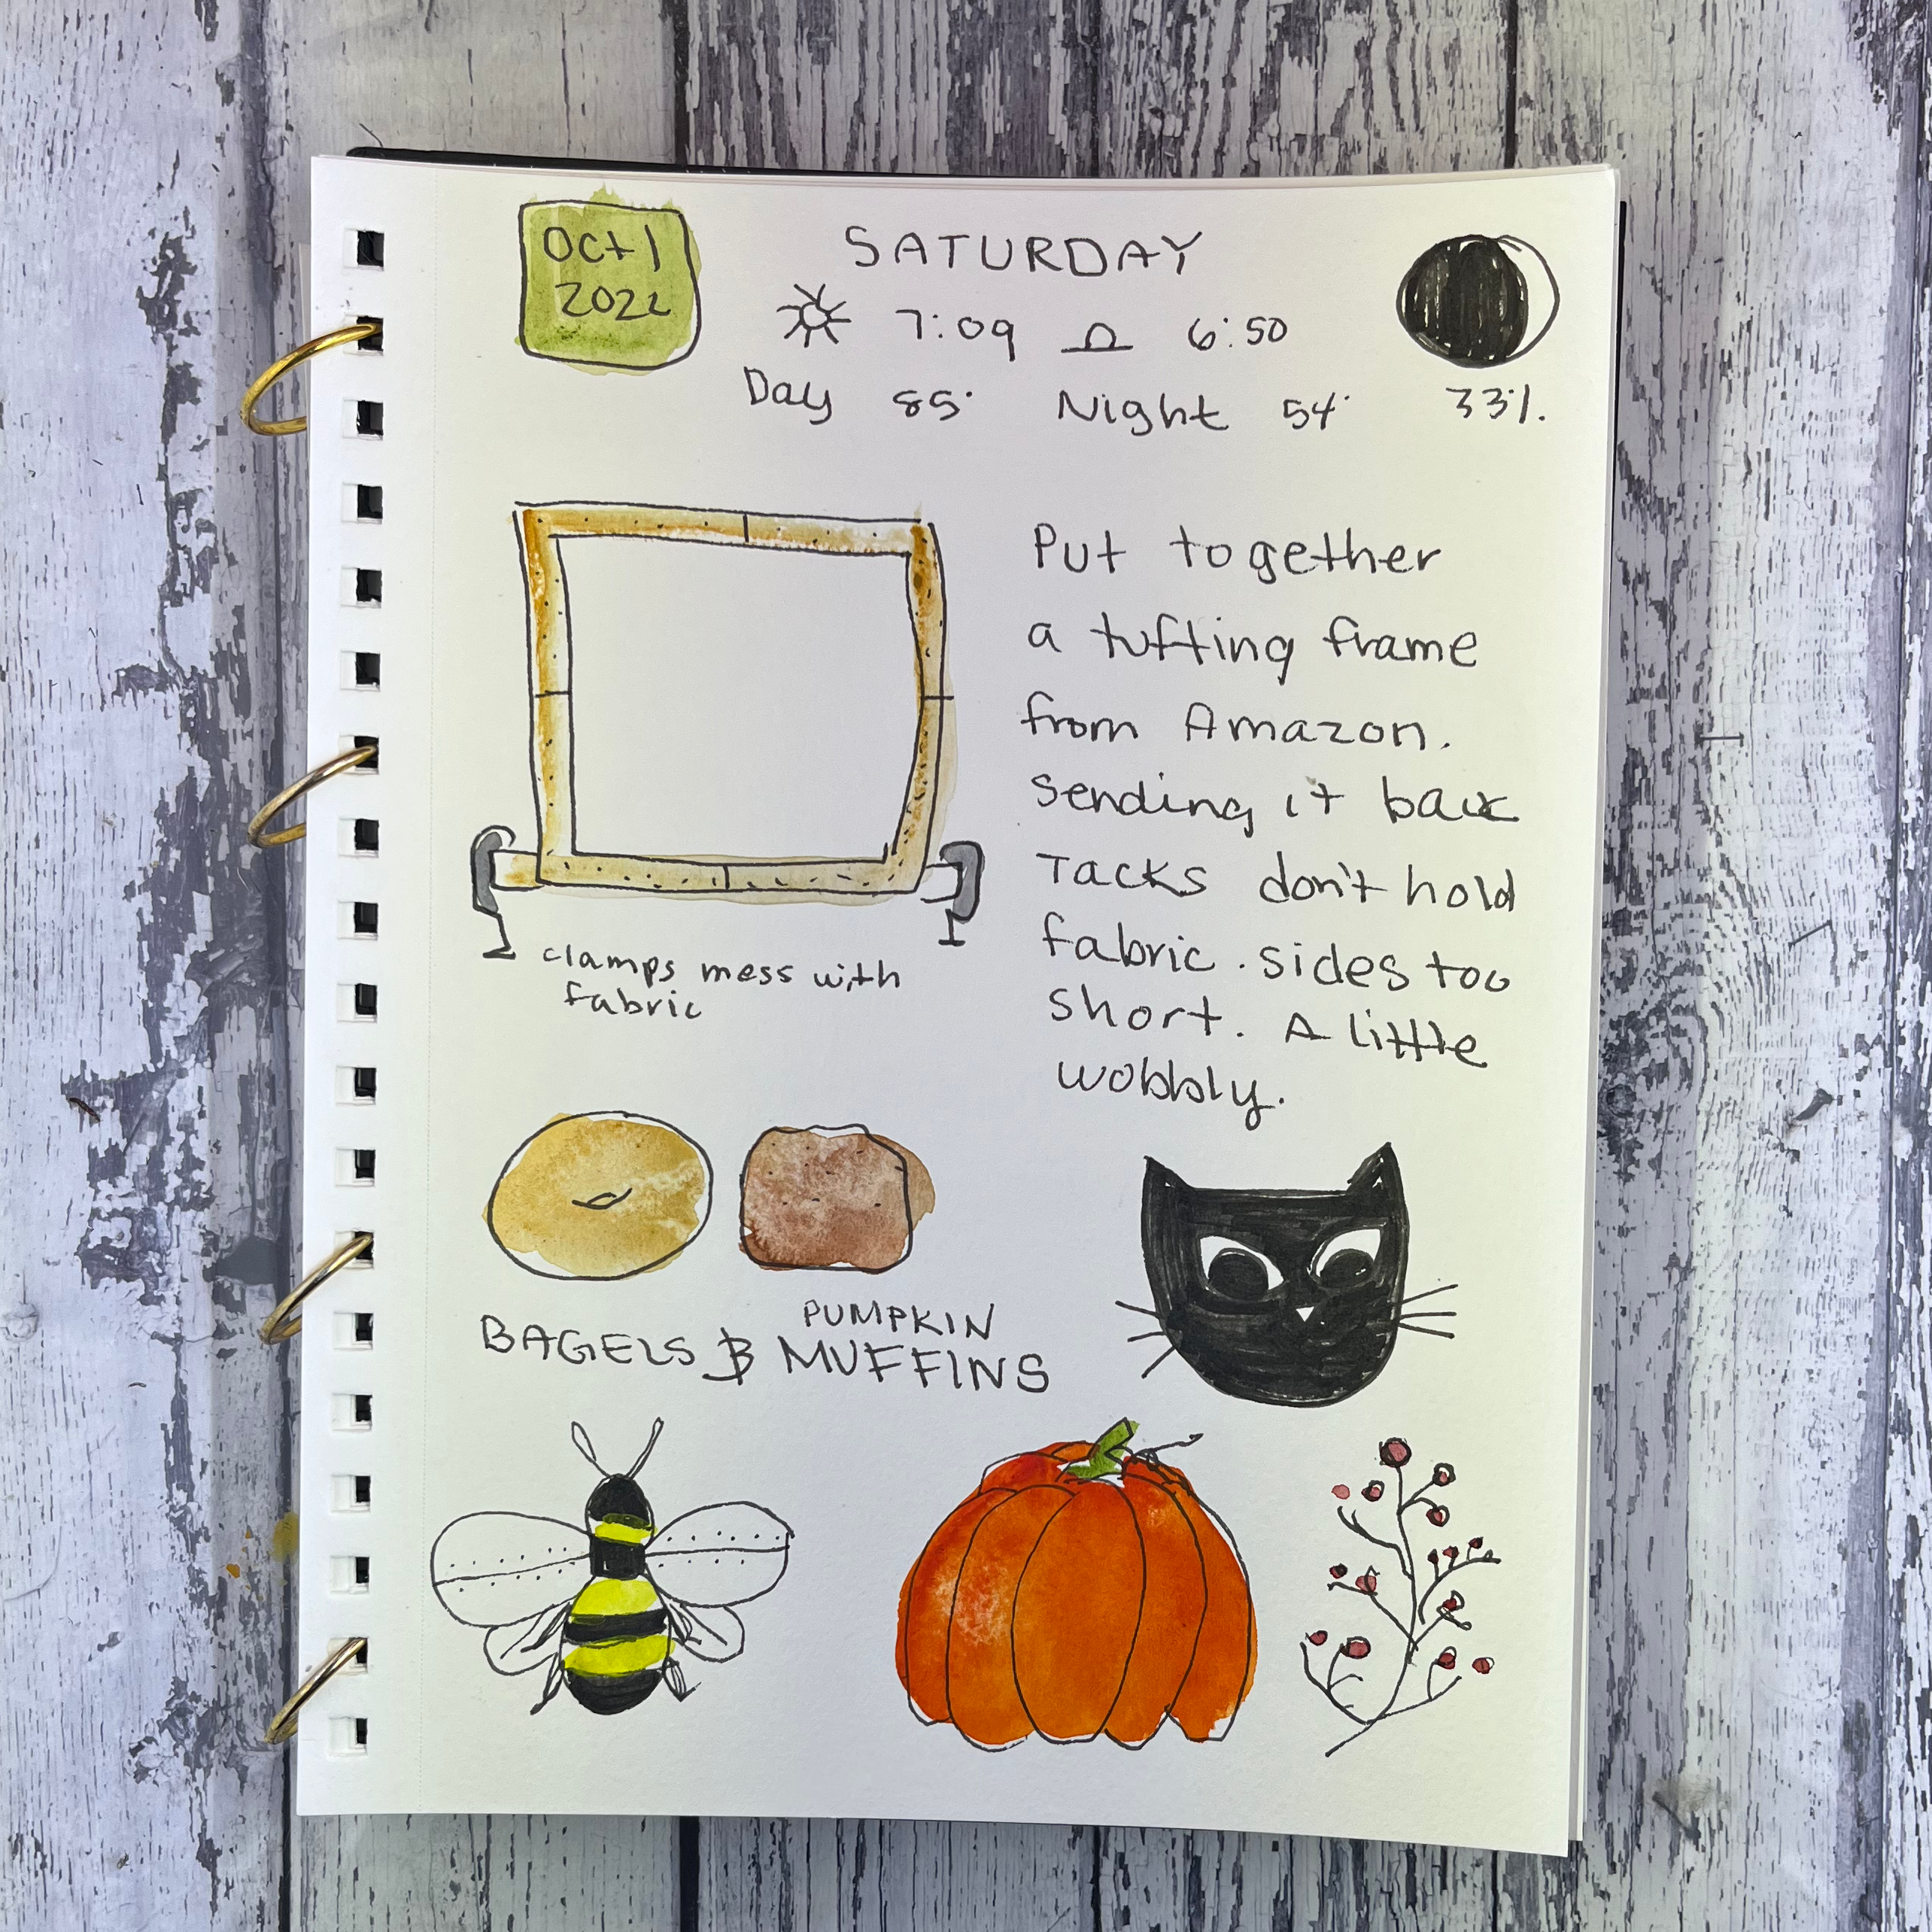 Oct 1
2022
SATURDAY
7:09 6:50
Day 85° Night 54° 33%.
Put together
a tufting frame
from Amazon.
Sending it back
Tacks don't hold
fabric. sides too
short. A little
wobbly.
clamps mess with
fabric
BAGELS & PUMPKIN
MUFFINS